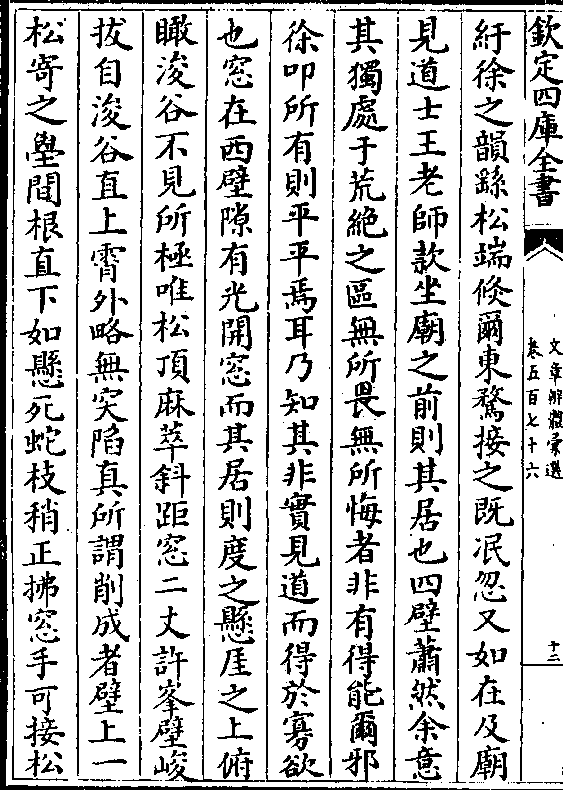 欽定四庫全書
文章辨體彙選
卷五百七十六
十三
紆徐之韻繇松端倐爾東騖接之既冺忽又如在及廟
見道士王老師款坐廟之前則其居也四壁蕭然余意
其獨處于荒絶之區無所畏無所悔者非有得能爾邪
徐叩所有則平平焉耳乃知其非實見道而得於寡欲
也窓在西壁隙有光開窓而其居則度之懸厓之上俯
瞰浚谷不見所極唯松頂麻萃斜距窓二丈許峯壁峻
拔自浚谷直上霄外略無突陷真所謂削成者壁上一
松寄之壘間根直下如懸死蛇枝稍正拂窓手可接松